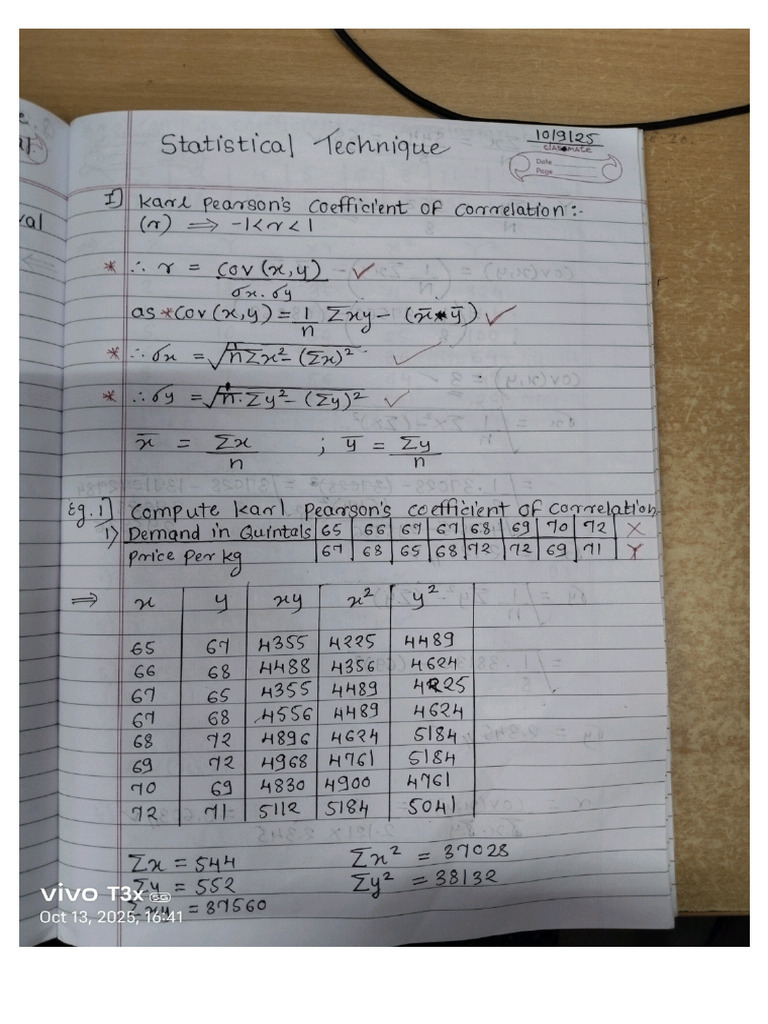 Statistical Technique
10/9/25
CLASSMATE
Date
Page
I] Karl Pearson's Coefficient of correlation:-
(r) ⟹ -1<r<1
* ∴ r = cov(x,y) / σx.σy ✓
as *Cov(x,y) = 1/n Σxy - (x̄ * ȳ) ✓
* ∴ σx = √n Σx² - (Σx)² ✓
* ∴ σy = √n·Σy² - (Σy)² ✓
x̄ = Σx/n ; ȳ = Σy/n
Eg.1] Compute Karl Pearson's coefficient of correlation
1) Demand in Quintals 65 66 67 67 68 69 70 72 X
Price Per kg 67 68 65 68 72 72 69 71 Y
⟹ x y xy x² y²
65 67 4355 4225 4489
66 68 4488 4356 4624
67 65 4355 4489 4225
67 68 4556 4489 4624
68 72 4896 4624 5184
69 72 4968 4761 5184
70 69 4830 4900 4761
72 71 5112 5184 5041
Σx = 544 Σx² = 37028
Σy = 552 Σy² = 38132
Σxy = 37560
vivo T3x 5G
Oct 13, 2025, 16:41